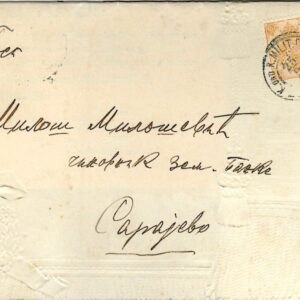 Гос.
Милош Милошевић
чиновник Зем. Банке
Сарајево
K.UND K. MILIT. P